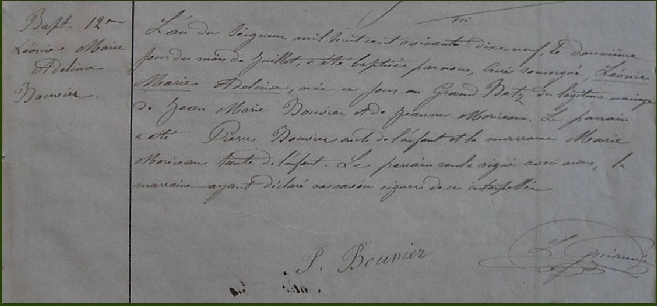 Bapt. 12me
Léonie Marie
Adelina
Bouvier.
L'an du Seigneur mil huit cent soixante-dix-neuf, le douzième
jour du mois de Juillet, a été baptisée par nous, Curé soussigné, Léonie
Marie Adelina, née ce jour au Grand Batz du légitime mariage
de Jean Marie Bouvier & de Jeanne Moriceau. Le parrain
a été Pierre Bouvier oncle de l'enfant et la marraine Marie
Moriceau tante de l'enfant. Le parrain seul a signé avec nous, la
marraine ayant déclaré ne savoir signer de ce interpellée
P. Bouvier